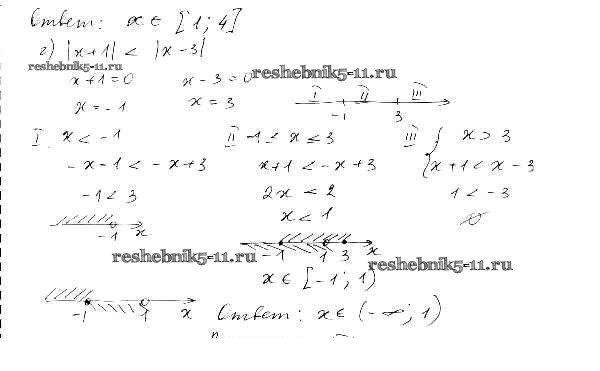 Ответ: x ∈ [1; 4]
г) |x+1| < |x-3|
reshebnik5-11.ru
reshebnik5-11.ru
x+1=0 x-3=0
x=-1 x=3
I II III
-1 3
I. x<-1 II -1≤x≤3 III { x>3
-x-1<-x+3 x+1<-x+3 x+1<x-3
-1<3 2x<2 1<-3
x<1 ∅
-1 x
-1 1 3 x
reshebnik5-11.ru
reshebnik5-11.ru
x∈[-1; 1)
-1 1 x
Ответ: x∈(-∞; 1)